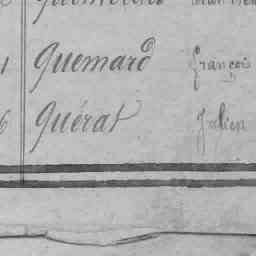 Quemard François
Quérat Julien